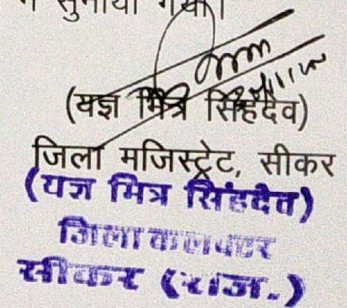 में सुनाया गया।
(यज्ञ मित्र सिंहदेव)
जिला मजिस्ट्रेट, सीकर
(यज्ञ मित्र सिंहदेव)
जिला कलक्टर
सीकर (राज.)